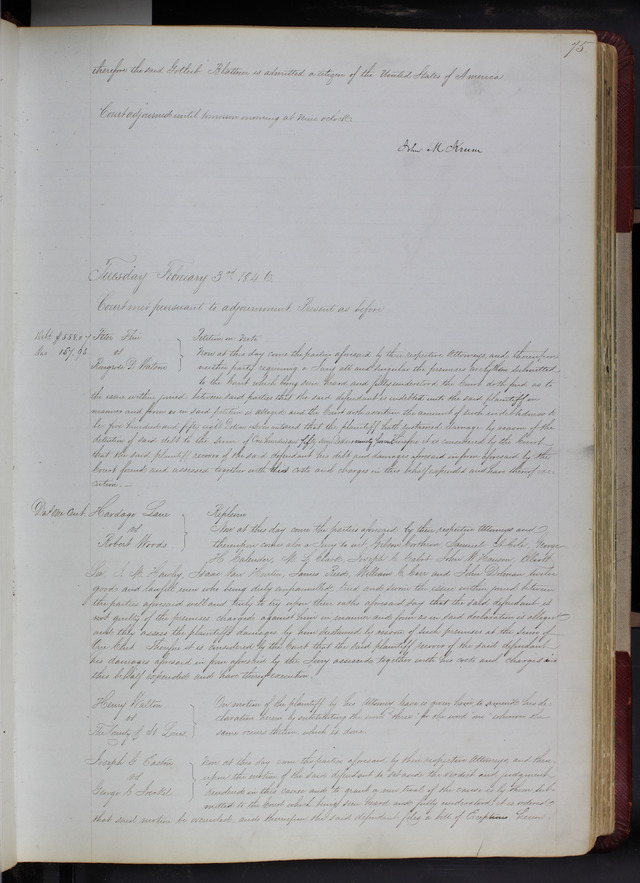 75
therefore the said Gotleib Blattner is admitted a citizen of the United States of America
Court adjourned until tomorrow morning at nine oclock
John M Krum
Tuesday February 3rd 1846
Court met pursuant to adjournment Present as before
Debt $558.07 Peter
Petition on Note
vs
Now at this day come the parties aforesaid by their respective Attorneys, and thereupon
neither party requiring a Jury all and singular the premises are submitted
to the Court which being seen heard and fully understood the Court doth find as to
the issue within joined between said parties that the said defendant is indebted unto the said plaintiff in
manner and form as in said petition is alleged and the Court doth ascertain the amount of such indebtedness to
be five hundred and fifty eight Dollars and that the plaintiff hath sustained damage by reason of the
detention of said debt to the sum of One hundred fifty seven Therefore it is considered by the Court
that the said plaintiff recover of the said defendant his debt and damages aforesaid in form aforesaid by the
Court found and assessed together with his costs and charges in this behalf expended and have thereof exe-
cution.
Das One Cent. Hardage Lane
Replevin
vs
Now at this day come the parties aforesaid by their respective Attorneys and
Robert Woods
thereupon comes also a Jury to wit, Samuel George
H Callender, Clark, Joseph Cabot John
Isaac Van James Reed, William C Carr and John Dolman twelve
good and lawfull men who being duly empannelled, tried and sworn the issue within joined between
the parties aforesaid well and truly to try upon their oaths aforesaid say that the said defendant is
not guilty of the premises charged against him in manner and form as in said declaration is alleged
and they assess the plaintiffs damages by him sustained by reason of such premises at the sum of
One Cent. Therefore it is considered by the Court that the said plaintiff recover of the said defendant
his damages aforesaid in form aforesaid by the Jury assessed together with his costs and charges in
this behalf expended and have thereof execution.
Henry Walton
On motion of the plaintiff by his Attorney leave is given him to amend his de-
vs
claration herein by substituting the word "three" for the word wherever the
The County of St Louis
same occurs therein which is done.
Joseph G Easton
Now at this day come the parties aforesaid by their respective Attorneys and there-
vs
upon the motion of the said defendant to set aside the verdict and judgment
George C
rendered in this cause and to grant a new trial of the cause is by them sub-
mitted to the Court which being seen heard and fully understood it is ordered
that said motion be overruled, and thereupon the said defendant files a bill of Exceptions herein